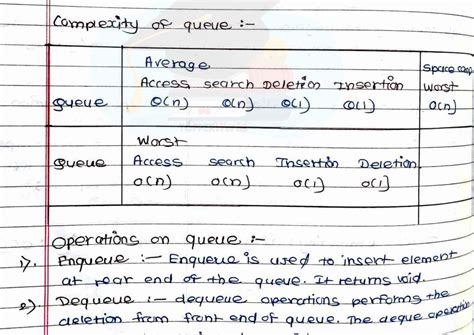 Complexity of queue :-
Average Space comp
Access search Deletion Insertion worst
queue O(n) O(n) O(1) O(1) O(n)
Worst
queue Access search Insertion Deletion.
O(n) O(n) O(1) O(1)
Operations on queue :-
1). Enqueue :- Enqueue is used to insert element
at rear end of the queue. It returns void.
2) Dequeue :- dequeue operations performs the
deletion from front end of queue. The deque operation